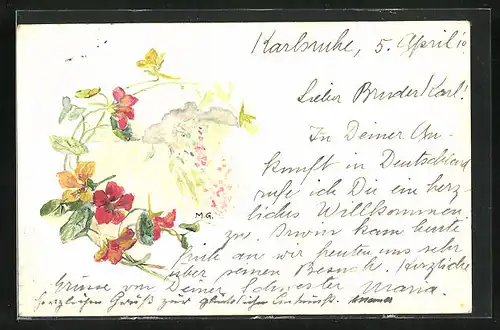 Karlsruhe, 5. April 10
Lieber Bruder Karl!
In Deiner An-
kunft in Deutschland
rufe ich Dir ein herz-
liches Willkommen
zu. Erwin kam heute
früh an wir freuten uns sehr
über seinen Besuch. Herzliche
Grüsse von Deiner Schwester Maria.
herzlichen Gruß zur glücklichen Ankunft.
M.G.